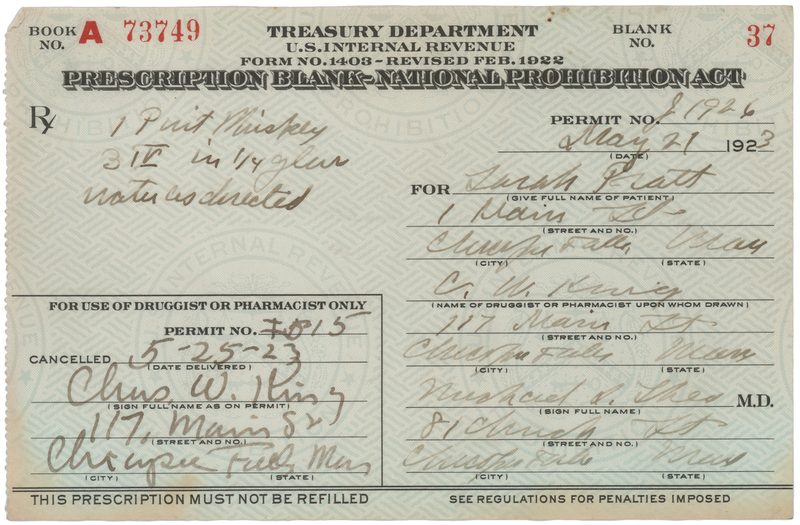 BOOK NO. A 73749
TREASURY DEPARTMENT
U.S. INTERNAL REVENUE
FORM NO. 1403 - REVISED FEB. 1922
BLANK NO. 37
PRESCRIPTION BLANK - NATIONAL PROHIBITION ACT
Rx
1 Pint Whiskey
in 1/4 glass
water as directed
PERMIT NO. 1926
May 21 1923
(DATE)
FOR Sarah Pratt
(GIVE FULL NAME OF PATIENT)
1 Main St
(STREET AND NO.)
Chicopee Falls Mass
(CITY) (STATE)
C. W. King
(NAME OF DRUGGIST OR PHARMACIST UPON WHOM DRAWN)
117 Main St
(STREET AND NO.)
Chicopee Falls Mass
(CITY) (STATE)
M.D.
(SIGN FULL NAME)
81 Church St
(STREET AND NO.)
Chicopee Falls Mass
(CITY) (STATE)
FOR USE OF DRUGGIST OR PHARMACIST ONLY
PERMIT NO. 15
CANCELLED 5-25-23
(DATE DELIVERED)
Chas. W. King
(SIGN FULL NAME AS ON PERMIT)
117, Main St
(STREET AND NO.)
Chicopee Falls Mass
(CITY) (STATE)
THIS PRESCRIPTION MUST NOT BE REFILLED
SEE REGULATIONS FOR PENALTIES IMPOSED